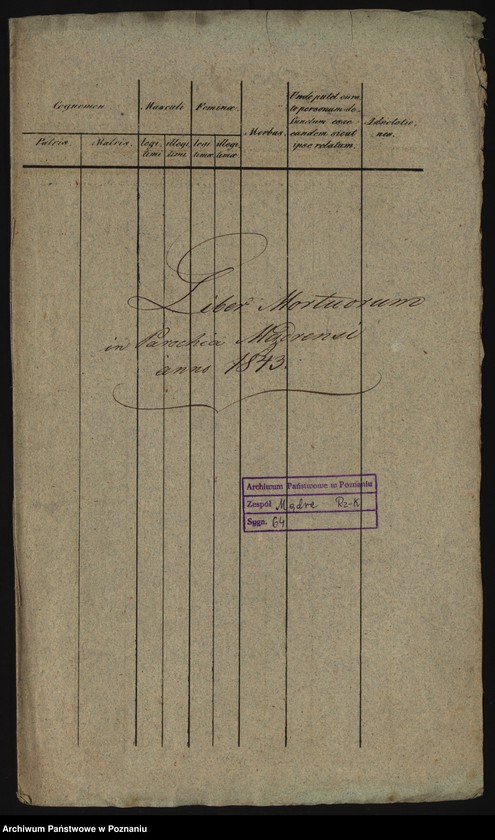 Cognomen
Masculi
Feminæ.
Morbus.
Unde patet cura-
to personam de-
functam esse
eandem sicut
ipse relatum.
Adnotatio-
nes.
Patris
Matris.
legi-
timi
illegi-
timi
legi-
timæ
illegi-
timæ
Liber Mortuorum
in Parochia Mądrensi
anno 1843.
Archiwum Państwowe w Poznaniu
Zespół Mądre Rz-K
Sygn. 64
Archiwum Państwowe w Poznaniu